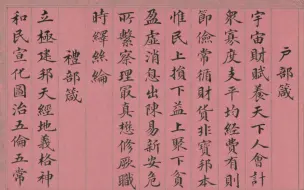 戶部箴
宇宙財賦養天下人會計
衆寡度支平均經費有則
節儉常循財貨非寶邦本
惟民上損下益上聚下貧
盈虛消息出陳易新安危
所繫察理最真懋修厥職
時繹絲綸
禮部箴
立極建邦天經地義格神
和民宣化國治五倫五常